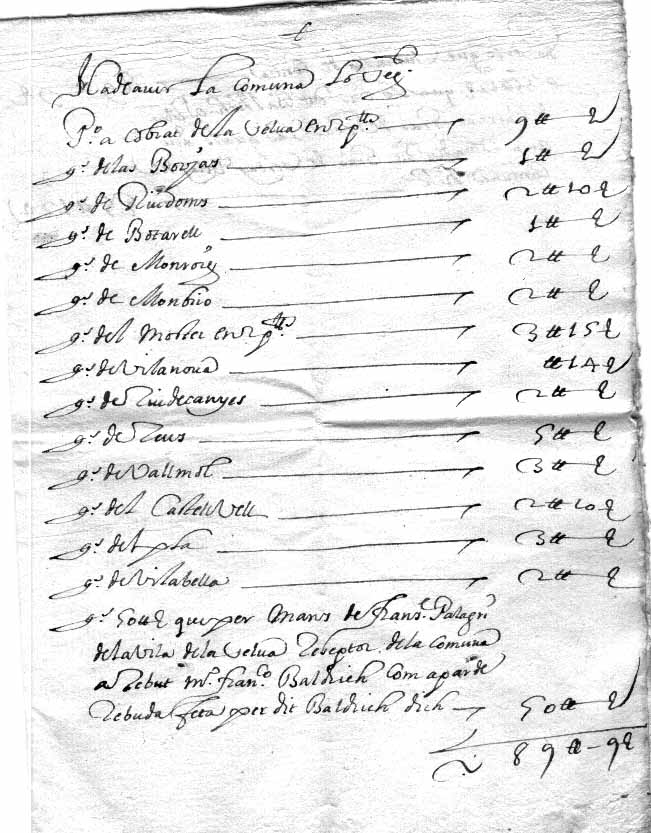 Ha de aver la Comuna lo seg.
P.º a cobrat de la Selva en 2 p.tts 9 tt £
g.t de las Borjas 1 tt £
g.t de Riudoms 2 tt 10 £
g.t de Botarell 1 tt £
g.t de Monroig 2 tt £
g.t de Monbrio 2 tt £
g.t del Moster en 2 p.tts 3 tt 15 £
g.t de Vilanova tt 14 £
g.t de Riudecanyes 2 tt £
g.t de Reus 5 tt £
g.t de Vallmol 3 tt £
g.t del Castellvell 2 tt 10 £
g.t del pla 3 tt £
g.t de Vilabella 2 tt £
g.t 50 tt £ que per mans de fran.c Palagri
de la vila de la Selva Receptor de la comuna
a Rebut m.º fran.co Baldrich Com apar de
Rebuda feta per dit Baldrich dich 50 tt £
89 tt - 9 £